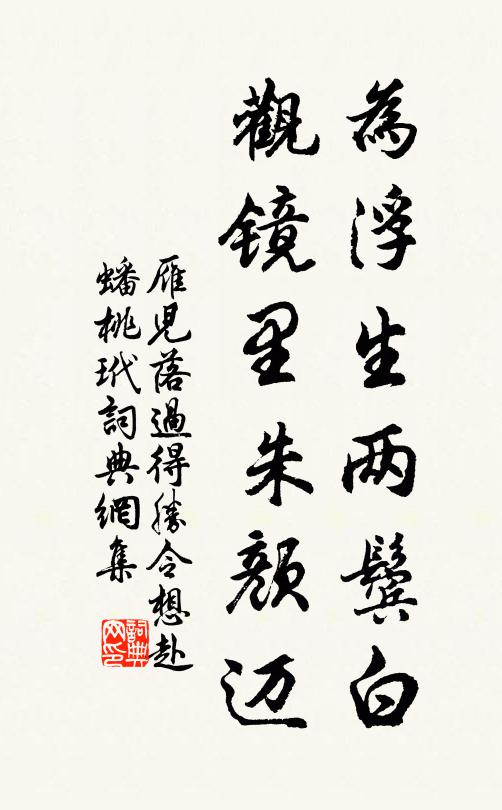 為浮生两鬢白
觀镜里朱顔迈
雁児落過得勝令想赴
蟠桃玳詞典網集
詞典
网印